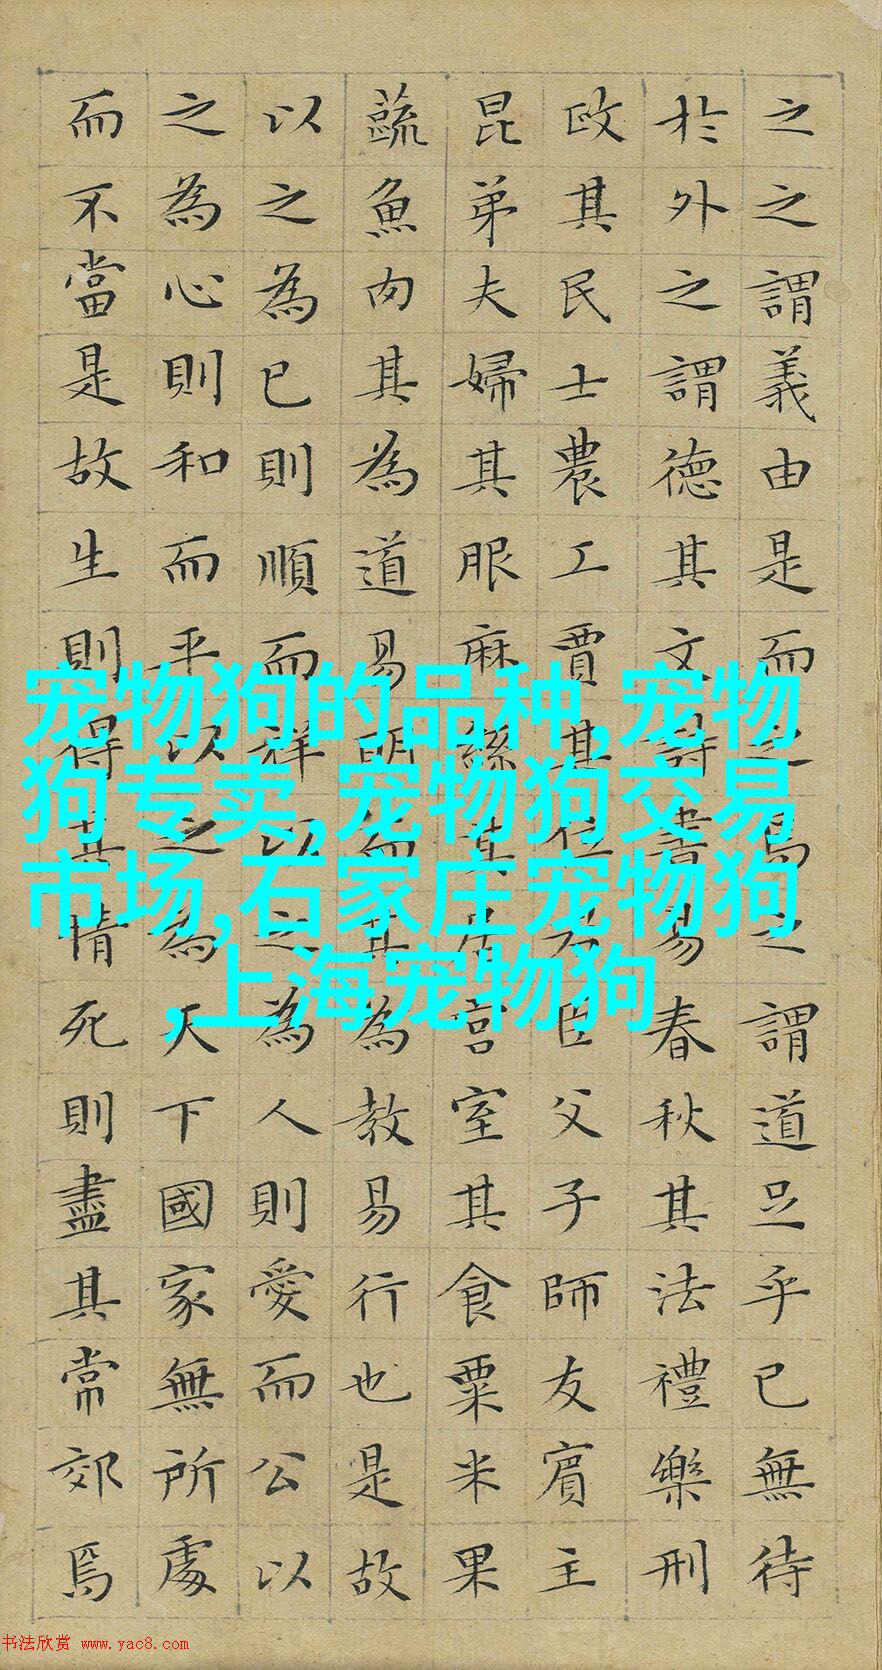 之之謂義由是而之焉之謂道足乎已無待
於外之謂德其文詩書易春秋其法禮樂刑
政其民士農工賈其位君臣父子師友賓主
昆弟夫婦其服麻絲其居宮室其食粟米果
蔬魚肉其為道易明而其為教易行也是故
以之為己則順而祥以之為人則愛而公以
之為心則和而平以之為天下國家無所處
而不當是故生則得其情死則盡其常郊焉
宠物狗的品种,宠物
狗专卖,宠物狗交易
市场,石家庄宠物狗
,上海宠物狗
书法欣赏 www.yac8.com